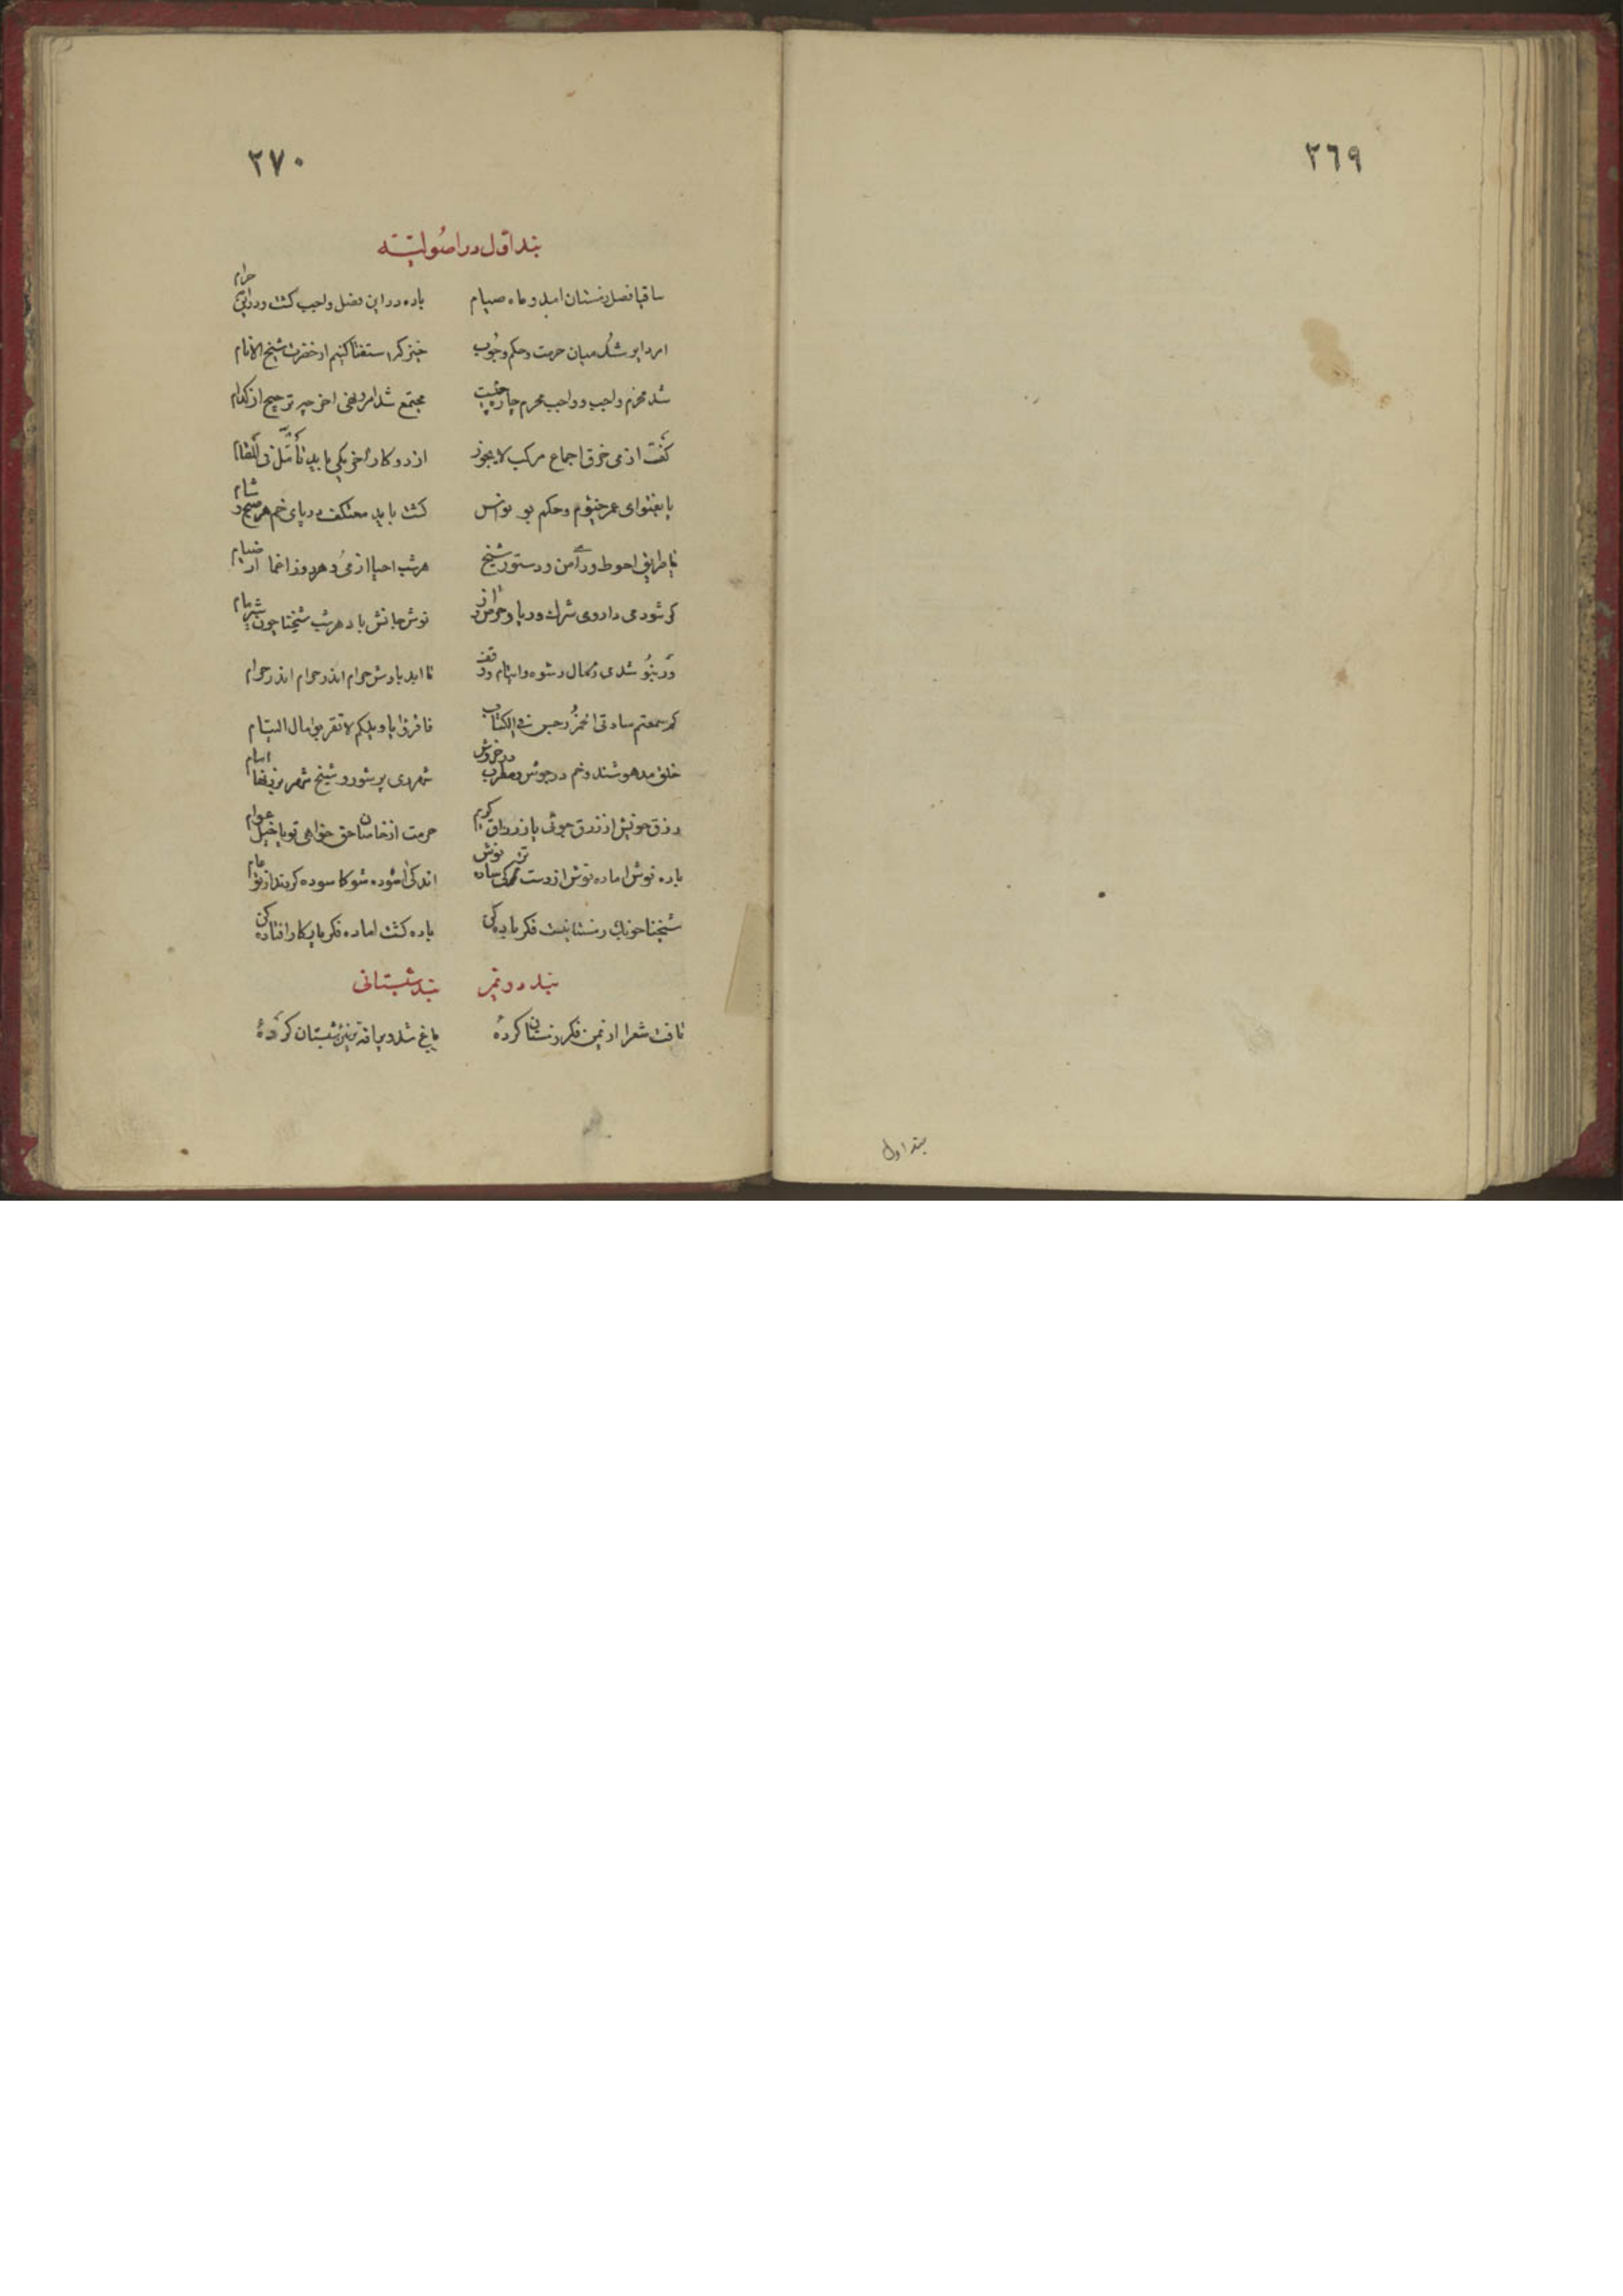 ٢٦٩
بند اول
٢٧٠
بند اول در اصولیته
ساقیا فصل زمستان امد و ماه صیام باده در این فصل واجب کشت و در این حرام
امر دایر شد میان حرمت و حکم وجوب خیز کر استفتا کنیم از حضرت شیخ الانام
شد محرم واجب و واجب محرم چاره چیست مجتمع شد امر و نهی اخر چه ترجیح از کدام
کفت از می خرق اجماع مرکب لایجوز از دو کار اخر یکی باید تأمل فی المقام
یا بفتوای عمر خیوم و حکم بو نواس کشت باید معتکف در پای خم هر صبح و شام
یا طریق احوط ور آمن و دستور شیخ هر شب احیا از می و هر روز اغما از صیام
کر شود می داروی شرک و ریا و حرص و از نوش جانش باد هر شب شیخنا چون شیر مام
ور نبو شدی ز مال رشوه و ایتام و وقف تا ابد بادش حرام اندر حرام اندر حرام
کم سمعتم سادتی الخمر رجس فی الکتاب فاقرؤا یا ویلکم لا تقربوا مال الیتام
خلق مدهوشند و خم در جوش و مطرب در خروش شهر می پر شور و شیخ شهر
رزق خویش از زرق جوئی یا ز رزاق کریم حرمت از خاصان حق خواهی تو یا خیل عوام
باده نوش اماده نوش از دست ترکی ساده نوش اندکی اسوده شو کاسوده کردند از تو مام
شیخنا خوناب رستانیست فکر باده کن باده کشت اماده فکر مایه کار افتاده کن
بند دویم بند شبستانی
تافت شعرا از یمن فکر زمستان کرده باغ شد ویرانه تزیین شبستان کرده